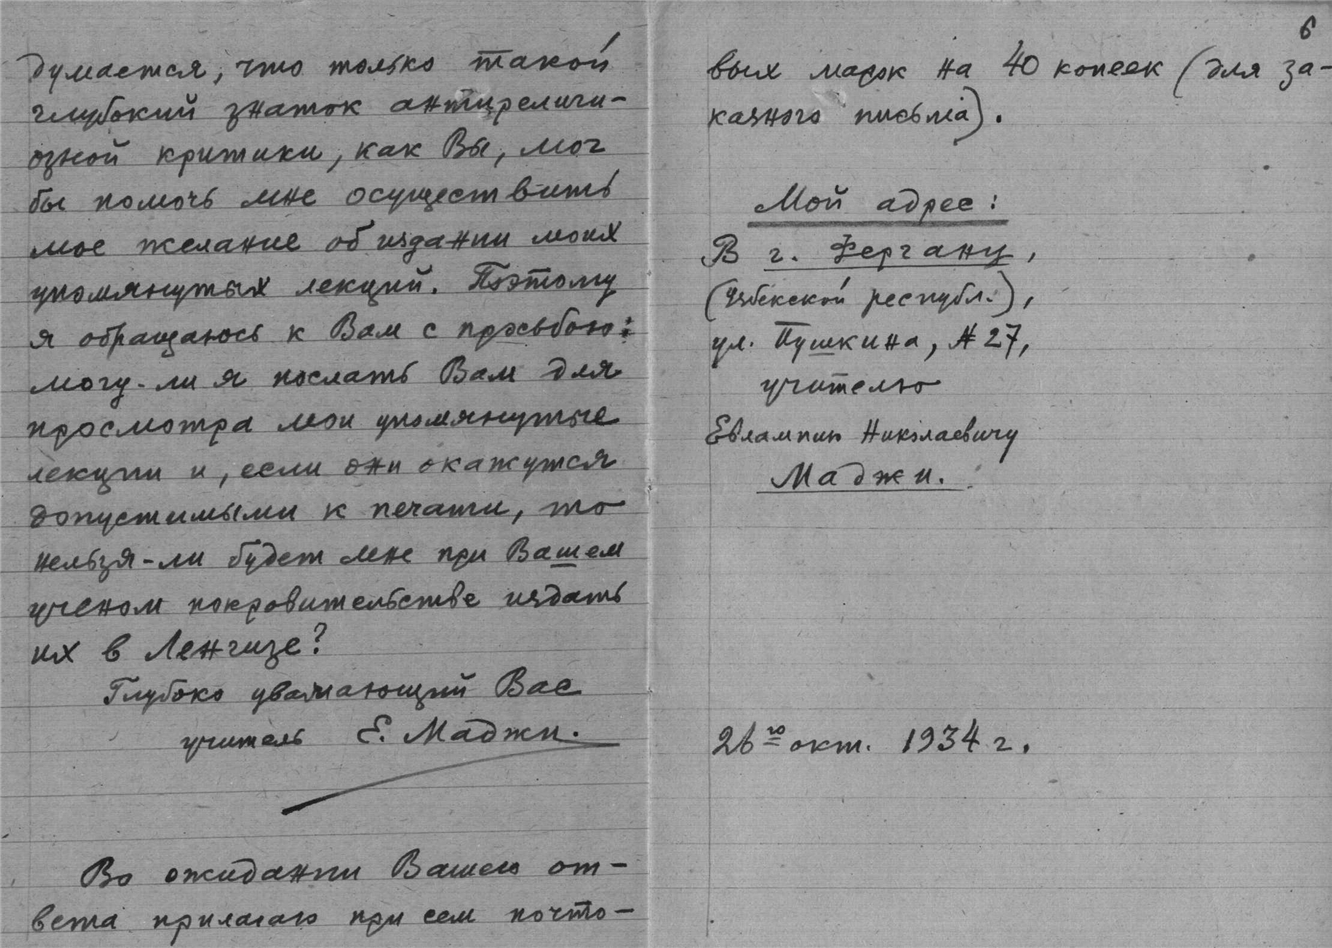 думается, что только такой
глубокий знаток антирелиги-
озной критики, как Вы, мог
бы помочь мне осуществить
мое желание об издании моих
упомянутых лекций. Поэтому
я обращаюсь к Вам с просьбою:
могу-ли я послать Вам для
просмотра мои упомянутые
лекции и, если они окажутся
допустимыми к печати, то
нельзя-ли будет мне при Вашем
ученом покровительстве издать
их в Ленгизе?
Глубоко уважающий Вас
учитель Е. Маджи.
Во ожидании Вашего от-
вета прилагаю при сем почто-
6
вых марок на 40 копеек (для за-
казного письма).
Мой адрес:
В г. Фергану,
(Узбекской республ.),
ул. Пушкина, № 27,
учителю
Евлампию Николаевичу
Маджи.
26го окт. 1934 г.